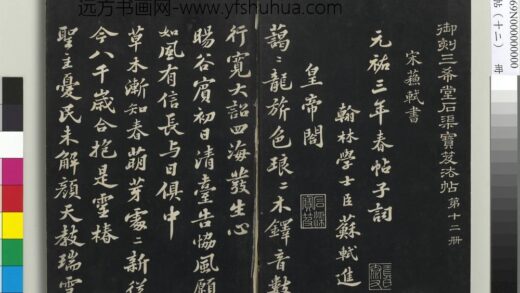 远方书画网-www.yfshuhua.com
御刻三希堂石渠寶笈法帖 第十二冊
宋蘇軾書
元祐三年春帖子詞
翰林學士臣蘇軾進
皇帝閣
藹〻龍旂色琅〻木鐸音數
行寬大詔四海發生心
暘谷賓初日清臺告協風願
如風有信長與日俱中
草木漸知春萌芽處〻新從
今八千歲合抱是靈椿
聖主憂民未解顏天教瑞雪
69N0000000000
帖(十二) 冊